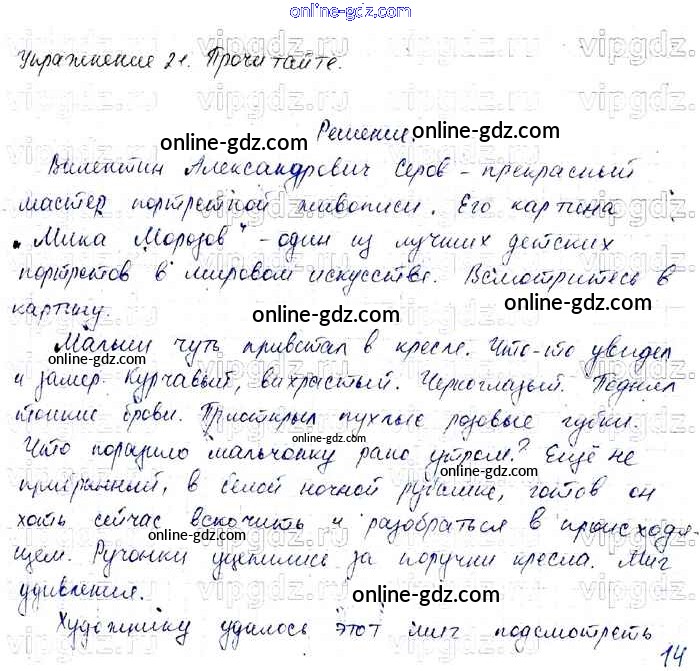 online-gdz.com
Упражнение 21. Прочитайте.
Решение.
online-gdz.com
online-gdz.com
Валентин Александрович Серов - прекрасный
мастер портретной живописи. Его картина
online-gdz.com
"Мика Морозов" - один из лучших детских
портретов в мировом искусстве. Всмотритесь в
online-gdz.com
картину.
online-gdz.com
Малыш чуть привстал в кресле. Что-то увидел
online-gdz.com
и замер. Курчавый, вихрастый. Черноглазый. Поднял
тонкие брови. Приоткрыл пухлые розовые губки.
online-gdz.com
Что поразило мальчонку рано утром? Ещё не
прибранный, в белой ночной рубашке, готов он
хоть сейчас вскочить и разобраться в происходя-
online-gdz.com
щем. Ручонки уцепились за поручни кресла. Миг
удивления.
online-gdz.com
Художнику удалось этот миг подсмотреть
14